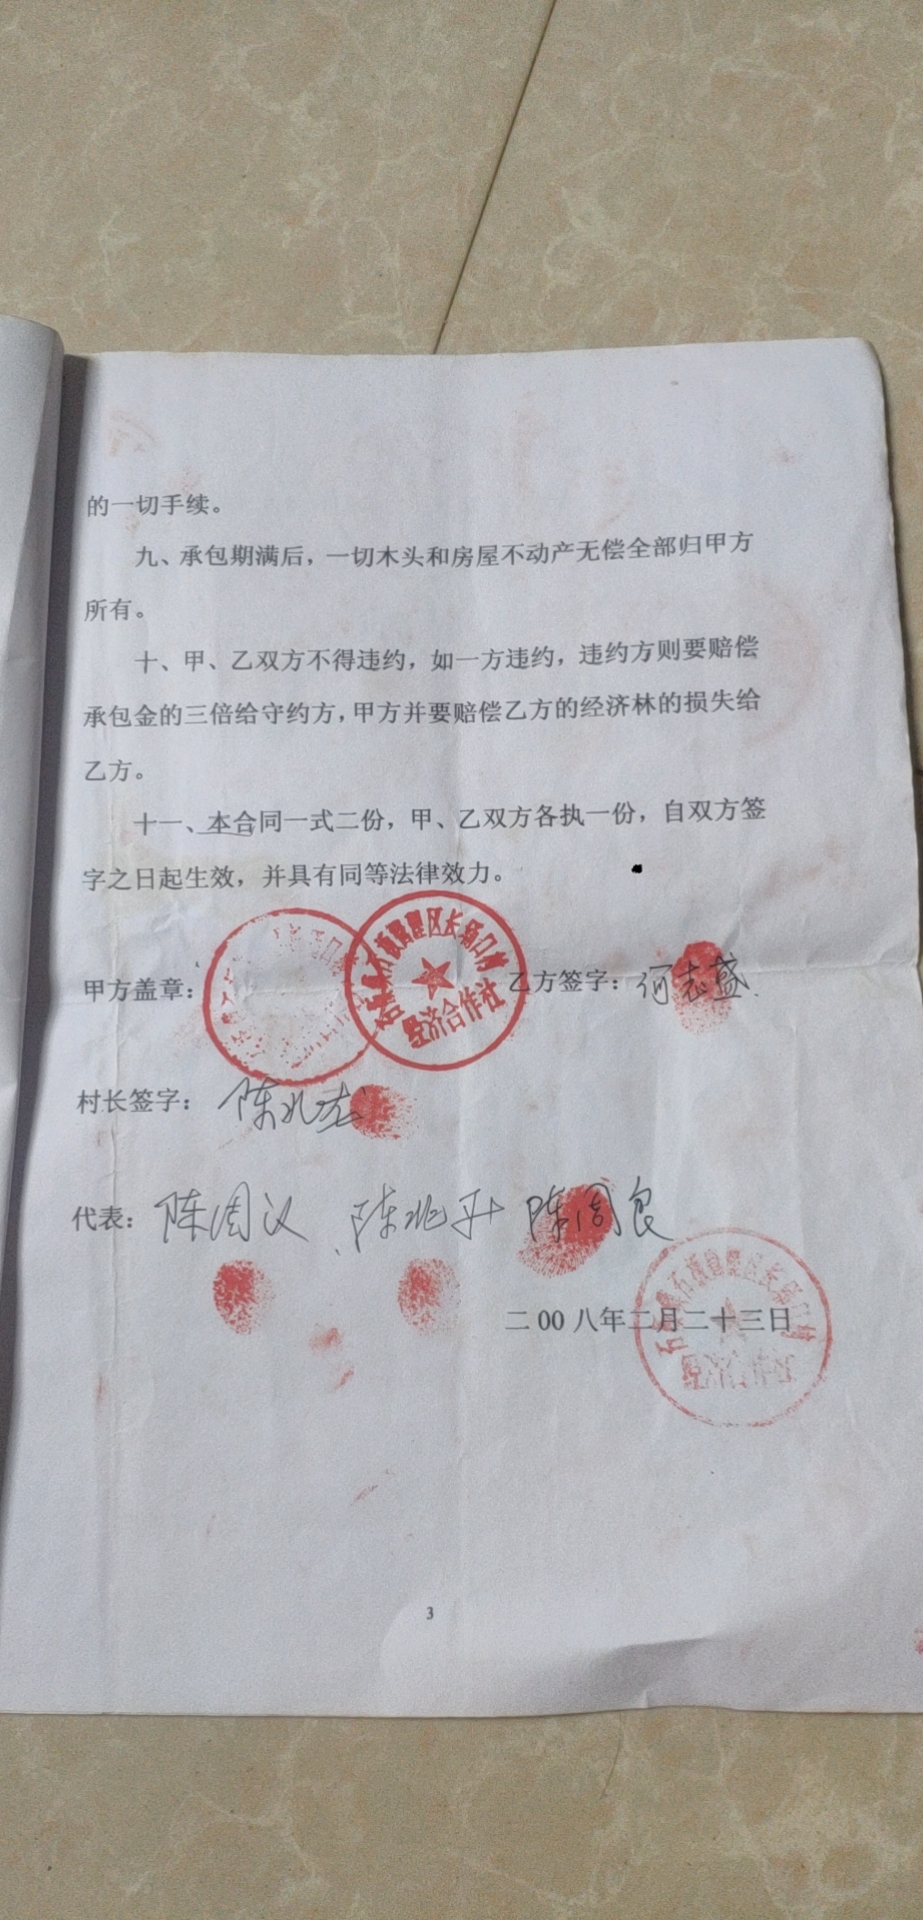 的一切手续。
九、承包期满后，一切木头和房屋不动产无偿全部归甲方
所有。
十、甲、乙双方不得违约，如一方违约，违约方则要赔偿
承包金的三倍给守约方，甲方并要赔偿乙方的经济林的损失给
乙方。
十一、本合同一式二份，甲、乙双方各执一份，自双方签
字之日起生效，并具有同等法律效力。
甲方盖章：
区长 口村
经济合作社
乙方签字：何志盛
村长签字：陈兆龙
代表：陈周义、陈兆升 陈周良
二00八年二月二十三日
区长 口村
经济合作社
3